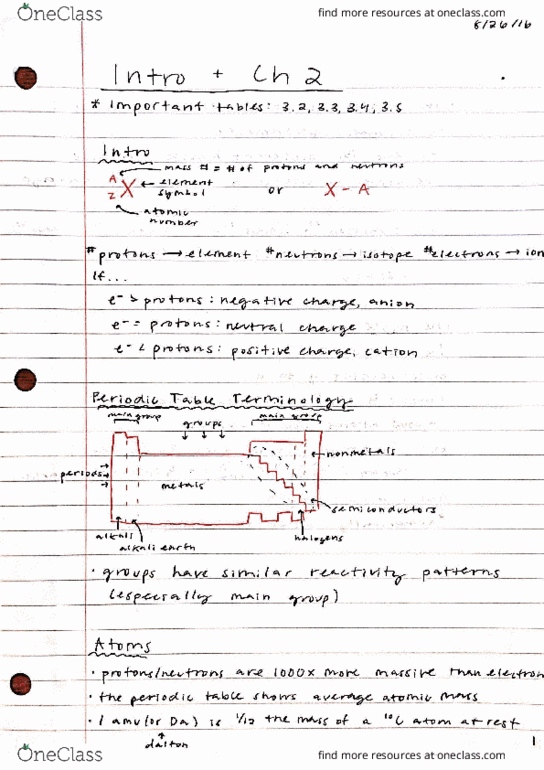 OneClass
find more resources at oneclass.com
8/26/16
Intro + Ch 2
* important tables: 3.2, 3.3, 3.4, 3.5
Intro
mass # = # of protons and neutrons
A
Z X ← element symbol or X - A
atomic number
# protons → element # neutrons → isotope # electrons → ion
If...
e⁻ > protons: negative charge, anion
e⁻ = protons: neutral charge
e⁻ < protons: positive charge, cation
Periodic Table Terminology
main group groups main group
nonmetals
periods
metals
semiconductors
alkali halogens
alkali earth
• groups have similar reactivity patterns
(especially main group)
Atoms
• protons/neutrons are 1000x more massive than electron
• the periodic table shows average atomic mass
• 1 amu (or Da) is 1/12 the mass of a C atom at rest
dalton
1
OneClass
find more resources at oneclass.com